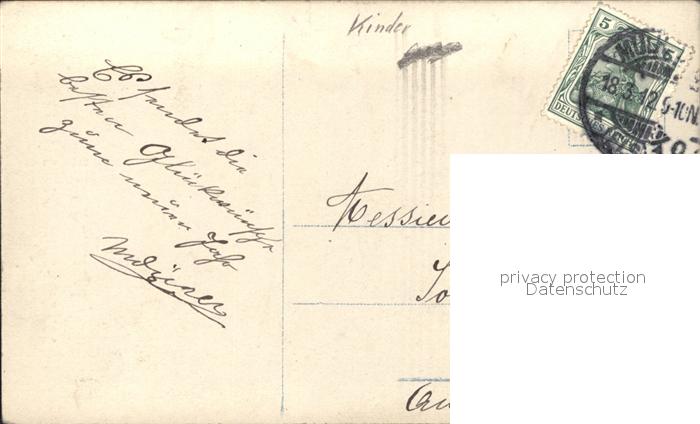 Kinder
Es sendet die
besten Glückwünsche
zum neuen Jahr
5
DEUTSCHES
18.3.12.9-10N.
Messieu
privacy protection
Datenschutz